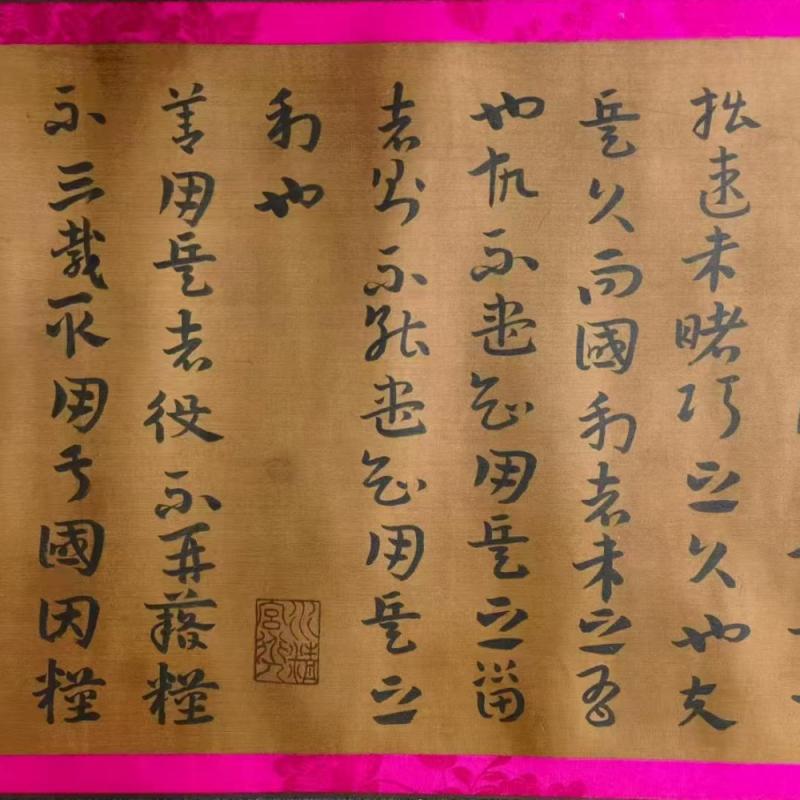 拙速未睹巧之久也夫
兵久而國利者未之有
也故不盡知用兵之
者則不能盡知用兵之
利也
善用兵者役不再藉糧
不三載取用于國因糧